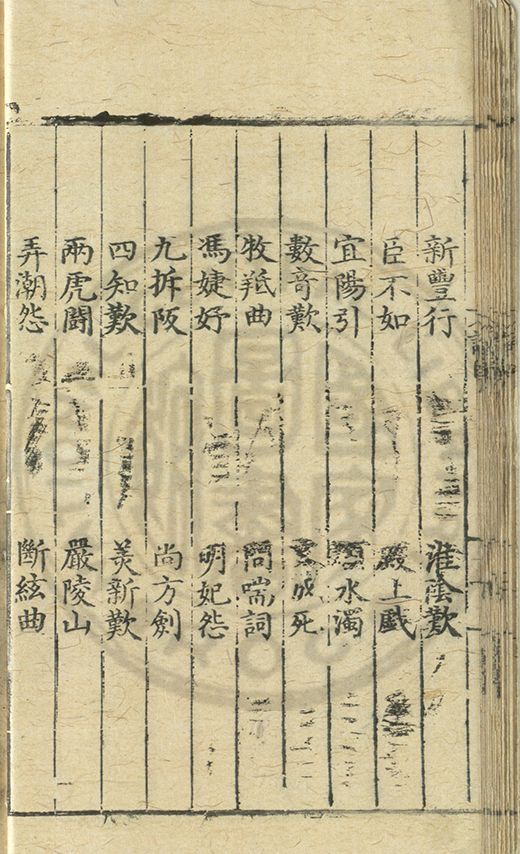 新豐行　淮陰歎
臣不如　殿上戲
宜陽引　潁水濁
數奇歎　成死
牧羝曲　問喘詞
馮婕妤　明妃怨
九折阪　尚方劍
四知歎　美新歎
兩虎鬪　嚴陵山
弄潮怨　斷絃曲